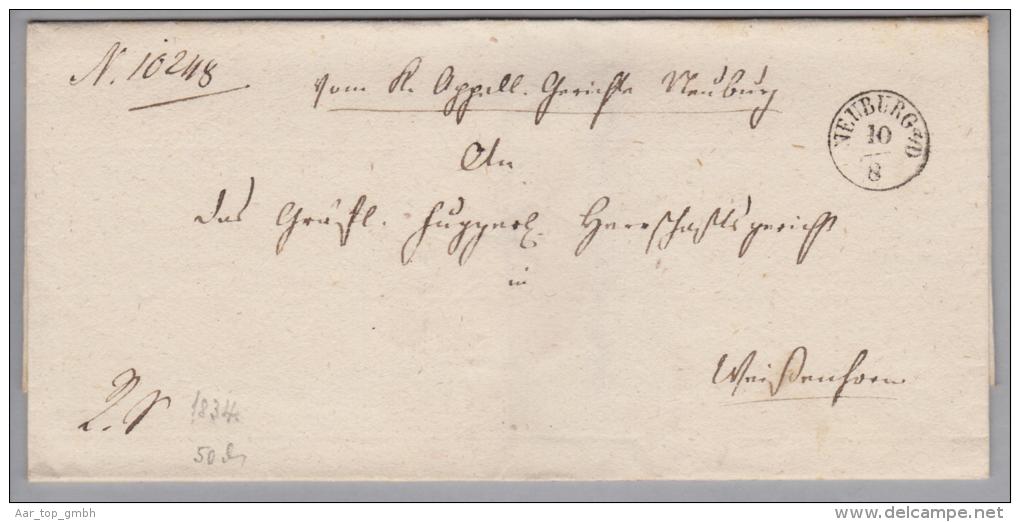 N. 10248
vom K. Appell. Gerichte Neuburg
NEUBURG a/D
10
8
An
das Gräfl. Fuggerl. Herrschaftsgericht
in
Weißenhorn
1834
50
Aar_top_gmbh
www.delcampe.net